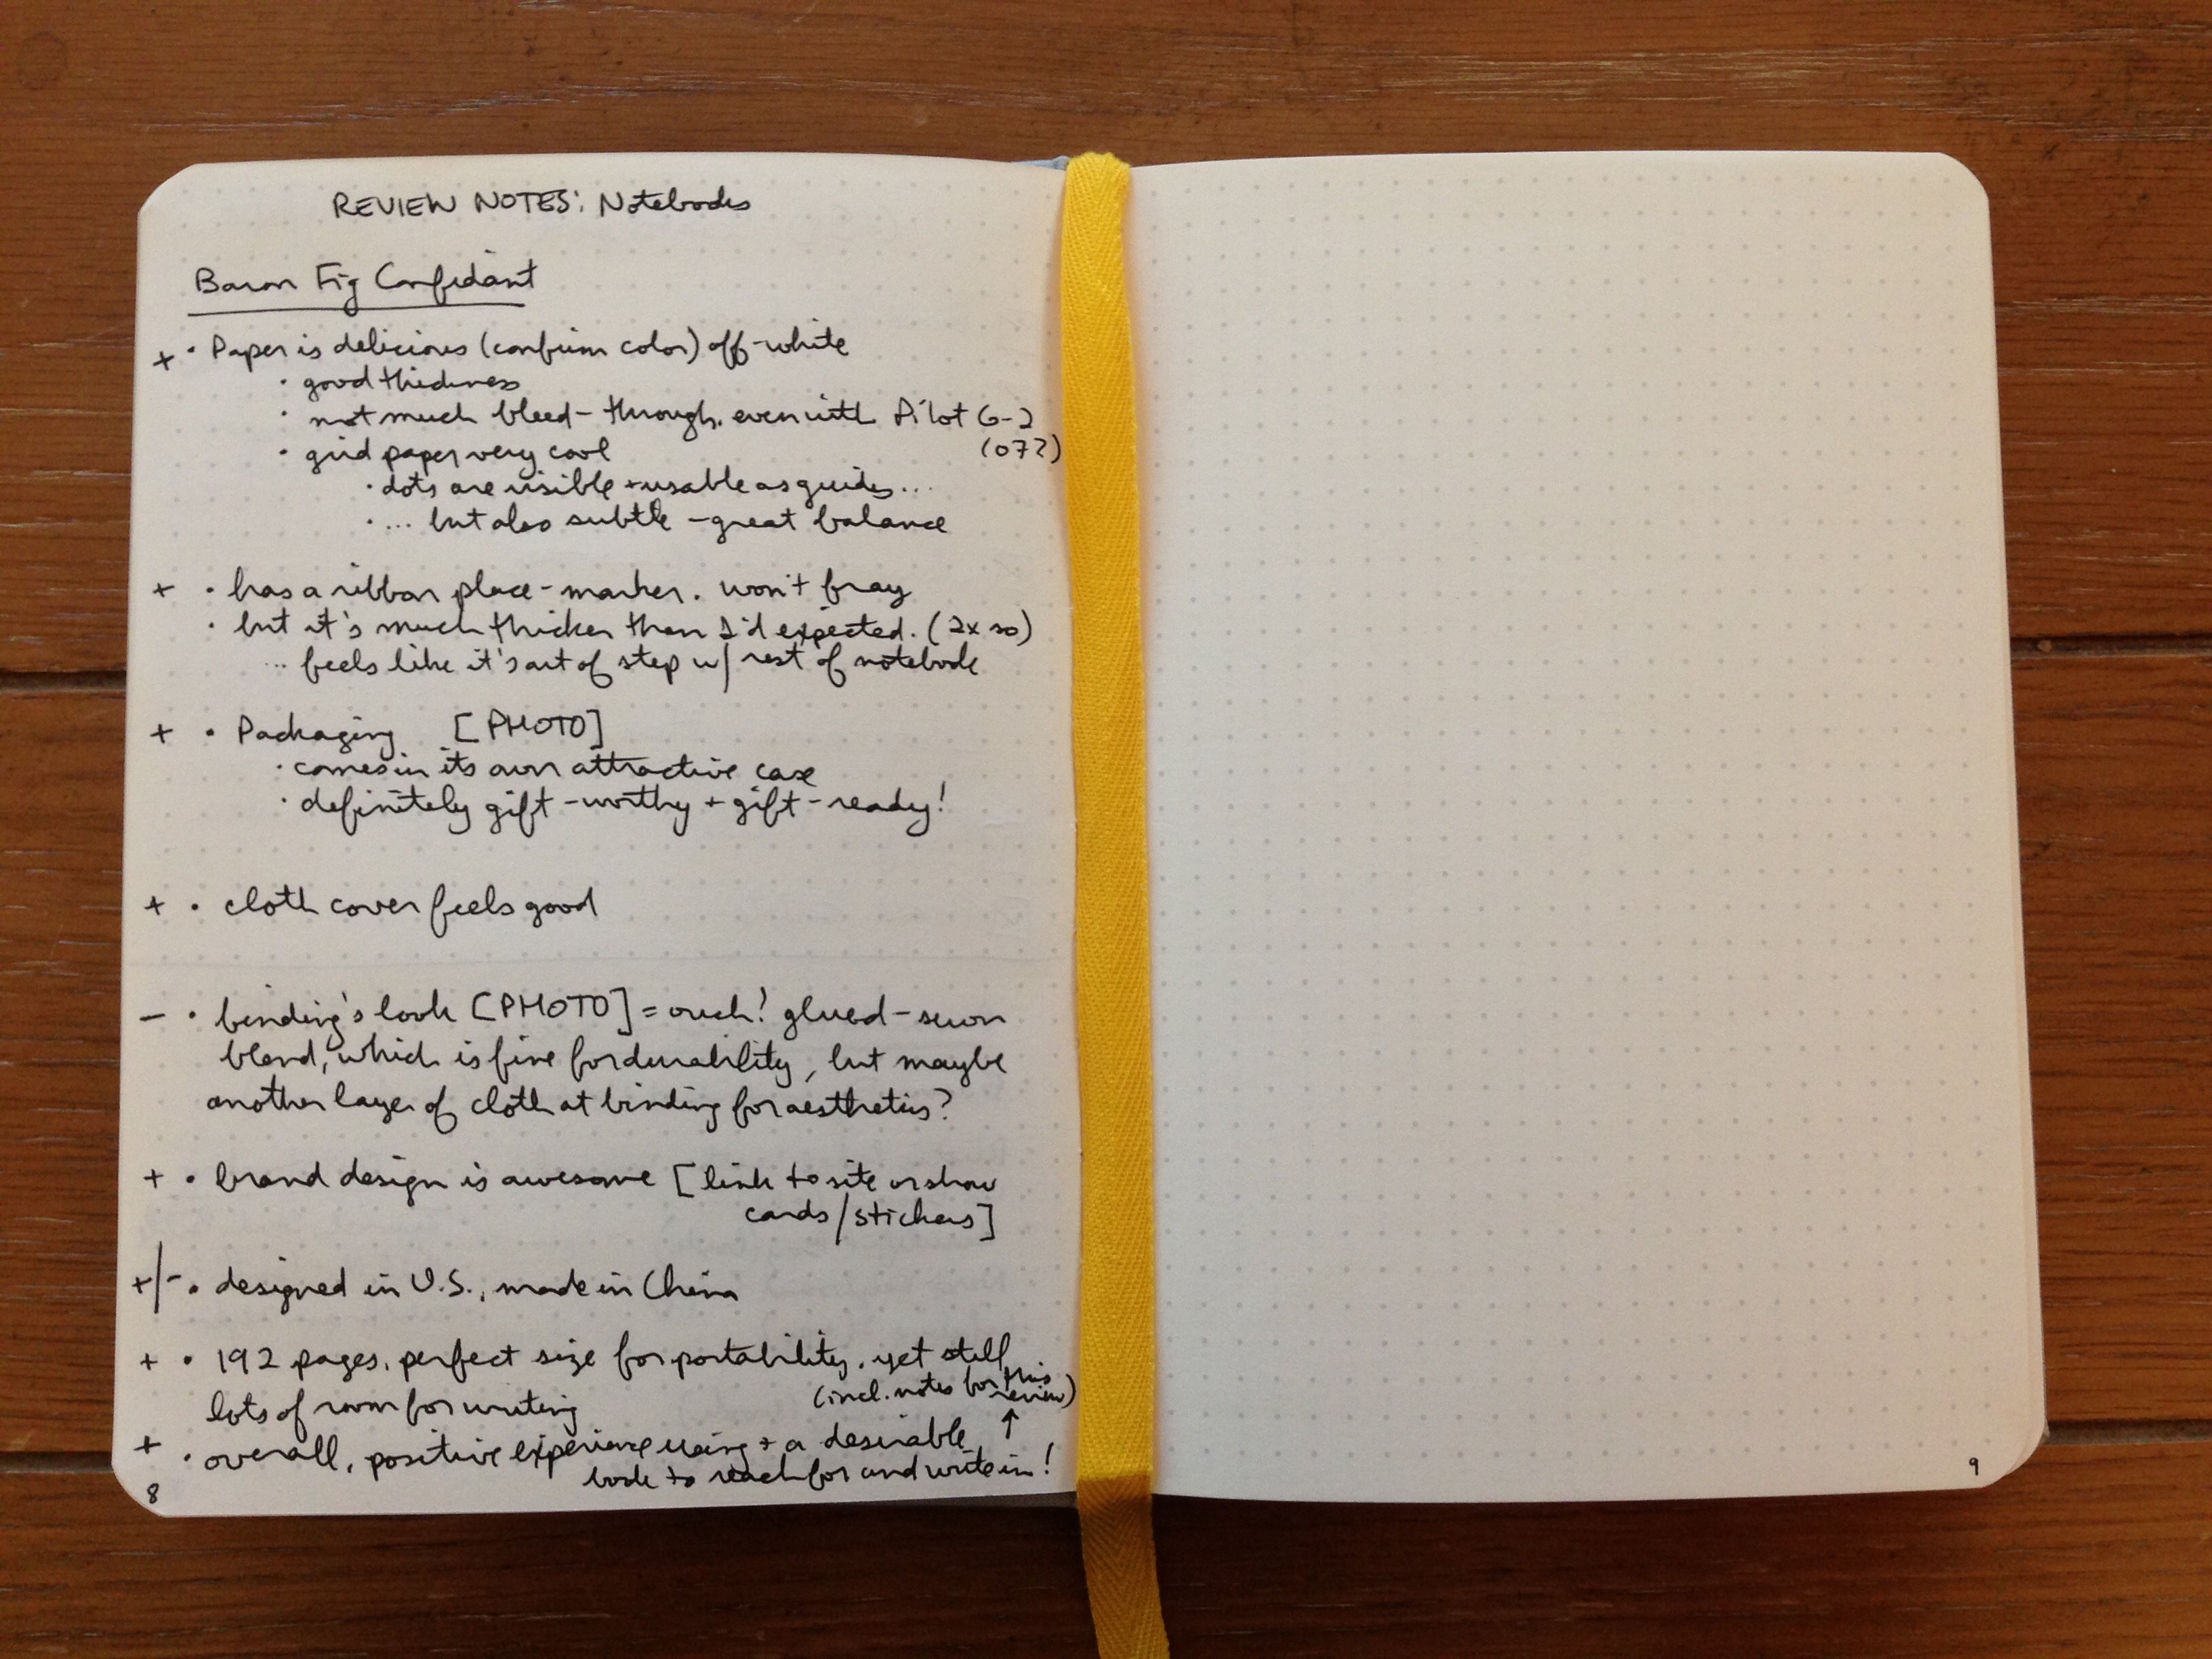 REVIEW NOTES: Notebooks
Baron Fig Confidant
+ • Paper is delicious (confirm color) off-white
• good thickness
• not much bleed-through, even with Pilot G-2
(07?)
• grid paper very cool
• dots are visible + usable as guides...
• ... but also subtle - great balance
+ • has a ribbon place-marker. won't fray
• but it's much thicker than I'd expected. (2x so)
... feels like it's out of step w/ rest of notebook
+ • Packaging [PHOTO]
• comes in its own attractive case
• definitely gift-worthy + gift-ready!
+ • cloth cover feels good
- • binding's look [PHOTO] = ouch! glued-sewn
blend, which is fine for durability, but maybe
another layer of cloth at binding for aesthetics?
+ • brand design is awesome [link to site or show
cards/stickers]
+/- • designed in U.S., made in China
+ • 192 pages, perfect size for portability, yet still
lots of room for writing
(incl. notes for this
review)
↑
+ • overall, positive experience using + a desirable
book to reach for and write in!
8
9